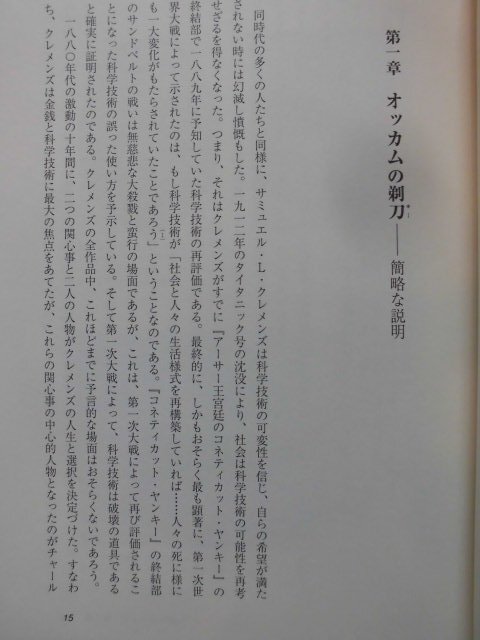 第一章 オッカムの剃刀――簡略な説明
同時代の多くの人たちと同様に、サミュエル・L・クレメンズは科学技術の可変性を信じ、自らの希望が満た
されない時には幻滅し憤慨もした。一九一二年のタイタニック号の沈没により、社会は科学技術の可能性を再考
せざるを得なくなった。つまり、それはクレメンズがすでに『アーサー王宮廷のコネティカット・ヤンキー』の
終結部で一八八九年に予知していた科学技術の再評価である。最終的に、しかもおそらく最も顕著に、第一次世
界大戦によって示されたのは、もし科学技術が「社会と人々の生活様式を再構築していれば……人々の死に様に
も一大変化がもたらされていたことであろう」(1)ということなのである。『コネティカット・ヤンキー』の終結部
のサンドベルトの戦いは無慈悲な大殺戮と蛮行の場面であるが、これは、第一次大戦によって再び評価されるこ
とになった科学技術の誤った使い方を予示している。そして第一次大戦によって、科学技術は破壊の道具である
と確実に証明されたのである。クレメンズの全作品中、これほどまでに予言的な場面はおそらくないであろう。
一八八〇年代の激動の十年間に、二つの関心事と二人の人物がクレメンズの人生と選択を決定づけた。すなわ
ち、クレメンズは金銭と科学技術に最大の焦点をあてたが、これらの関心事の中心的人物となったのがチャール
15